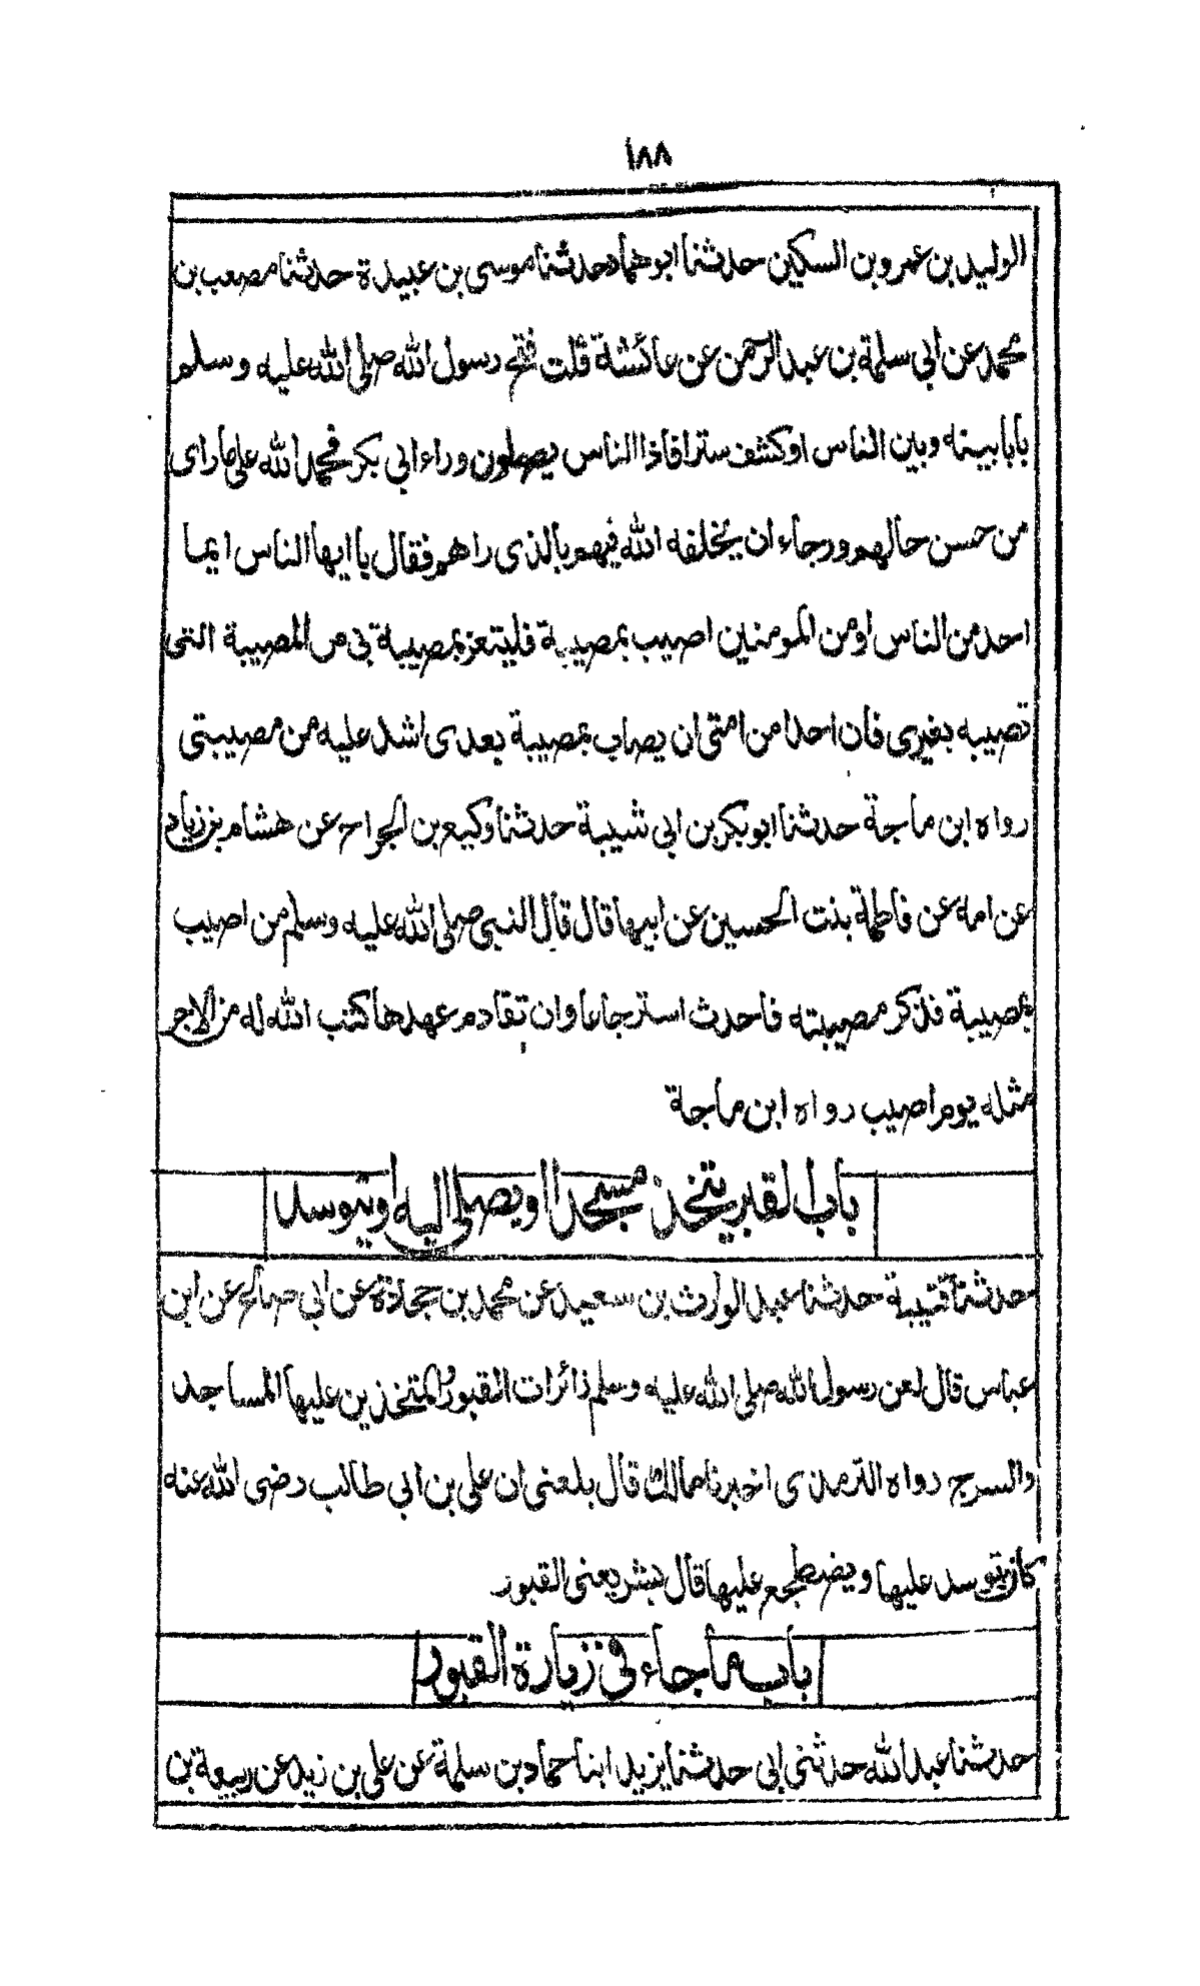 ١٨٨
الوليد بن عمرو بن السكين حدثنا ابو همام حدثنا موسى بن عبيدة حدثنا مصعب بن
محمد عن ابي سلمة بن عبد الرحمن عن عائشة قلت فتح رسول الله صلى الله عليه وسلم
بابا بينه وبين الناس او كشف سترا فاذا الناس يصلون وراء ابي بكر فحمد الله على ما راى
من حسن حالهم ورجاء ان يخلفه الله فيهم بالذى راهم فقال يا ايها الناس ايما
احد من الناس او من المومنين اصيب بمصيبة فليتعز بمصيبة بى من المصيبة التى
تصيبه بغيرى فان احدا من امتى ان يصاب بمصيبة بعدى اشد عليه من مصيبتى
رواه ابن ماجة حدثنا ابو بكر بن ابى شيبة حدثنا وكيع بن الجراح عن هشام بن زياد
عن امه عن فاطمة بنت الحسين عن ابيها قال قال النبى صلى الله عليه وسلم من اصيب
بمصيبة فذكر مصيبته فاحدث استرجاعا وان تقادم عهدها كتب الله له من الاجر
مثله يوم اصيب رواه ابن ماجة
باب القبر يتخذ مسجدا او يصلى اليه او يتوسد
حدثنا قتيبة حدثنا عبد الوارث بن سعيد عن محمد بن جحادة عن ابى صالح عن ابن
عباس قال لعن رسول الله صلى الله عليه وسلم زائرات القبور والمتخذين عليها المساجد
والسرج رواه الترمذى اخبرنا مالك قال بلغنى ان على بن ابى طالب رضى الله عنه
كان يتوسد عليها ويضطجع عليها قال بشر يعنى القبور
باب ما جاء فى زيارة القبور
حدثنا عبد الله حدثنى ابى حدثنا يزيد ابنا حماد بن سلمة عن على بن زيد عن ربيعة بن